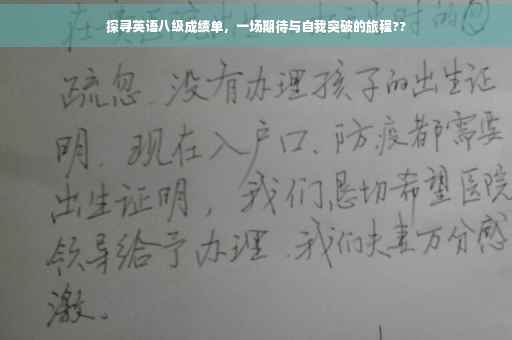 探寻英语八级成绩单，一场期待与自我突破的旅程??
疏忽.没有办理孩子的出生证
明.现在入户口、防疫都需要
出生证明，我们恳切希望医院
领导给予办理.我们夫妻万分感
激。